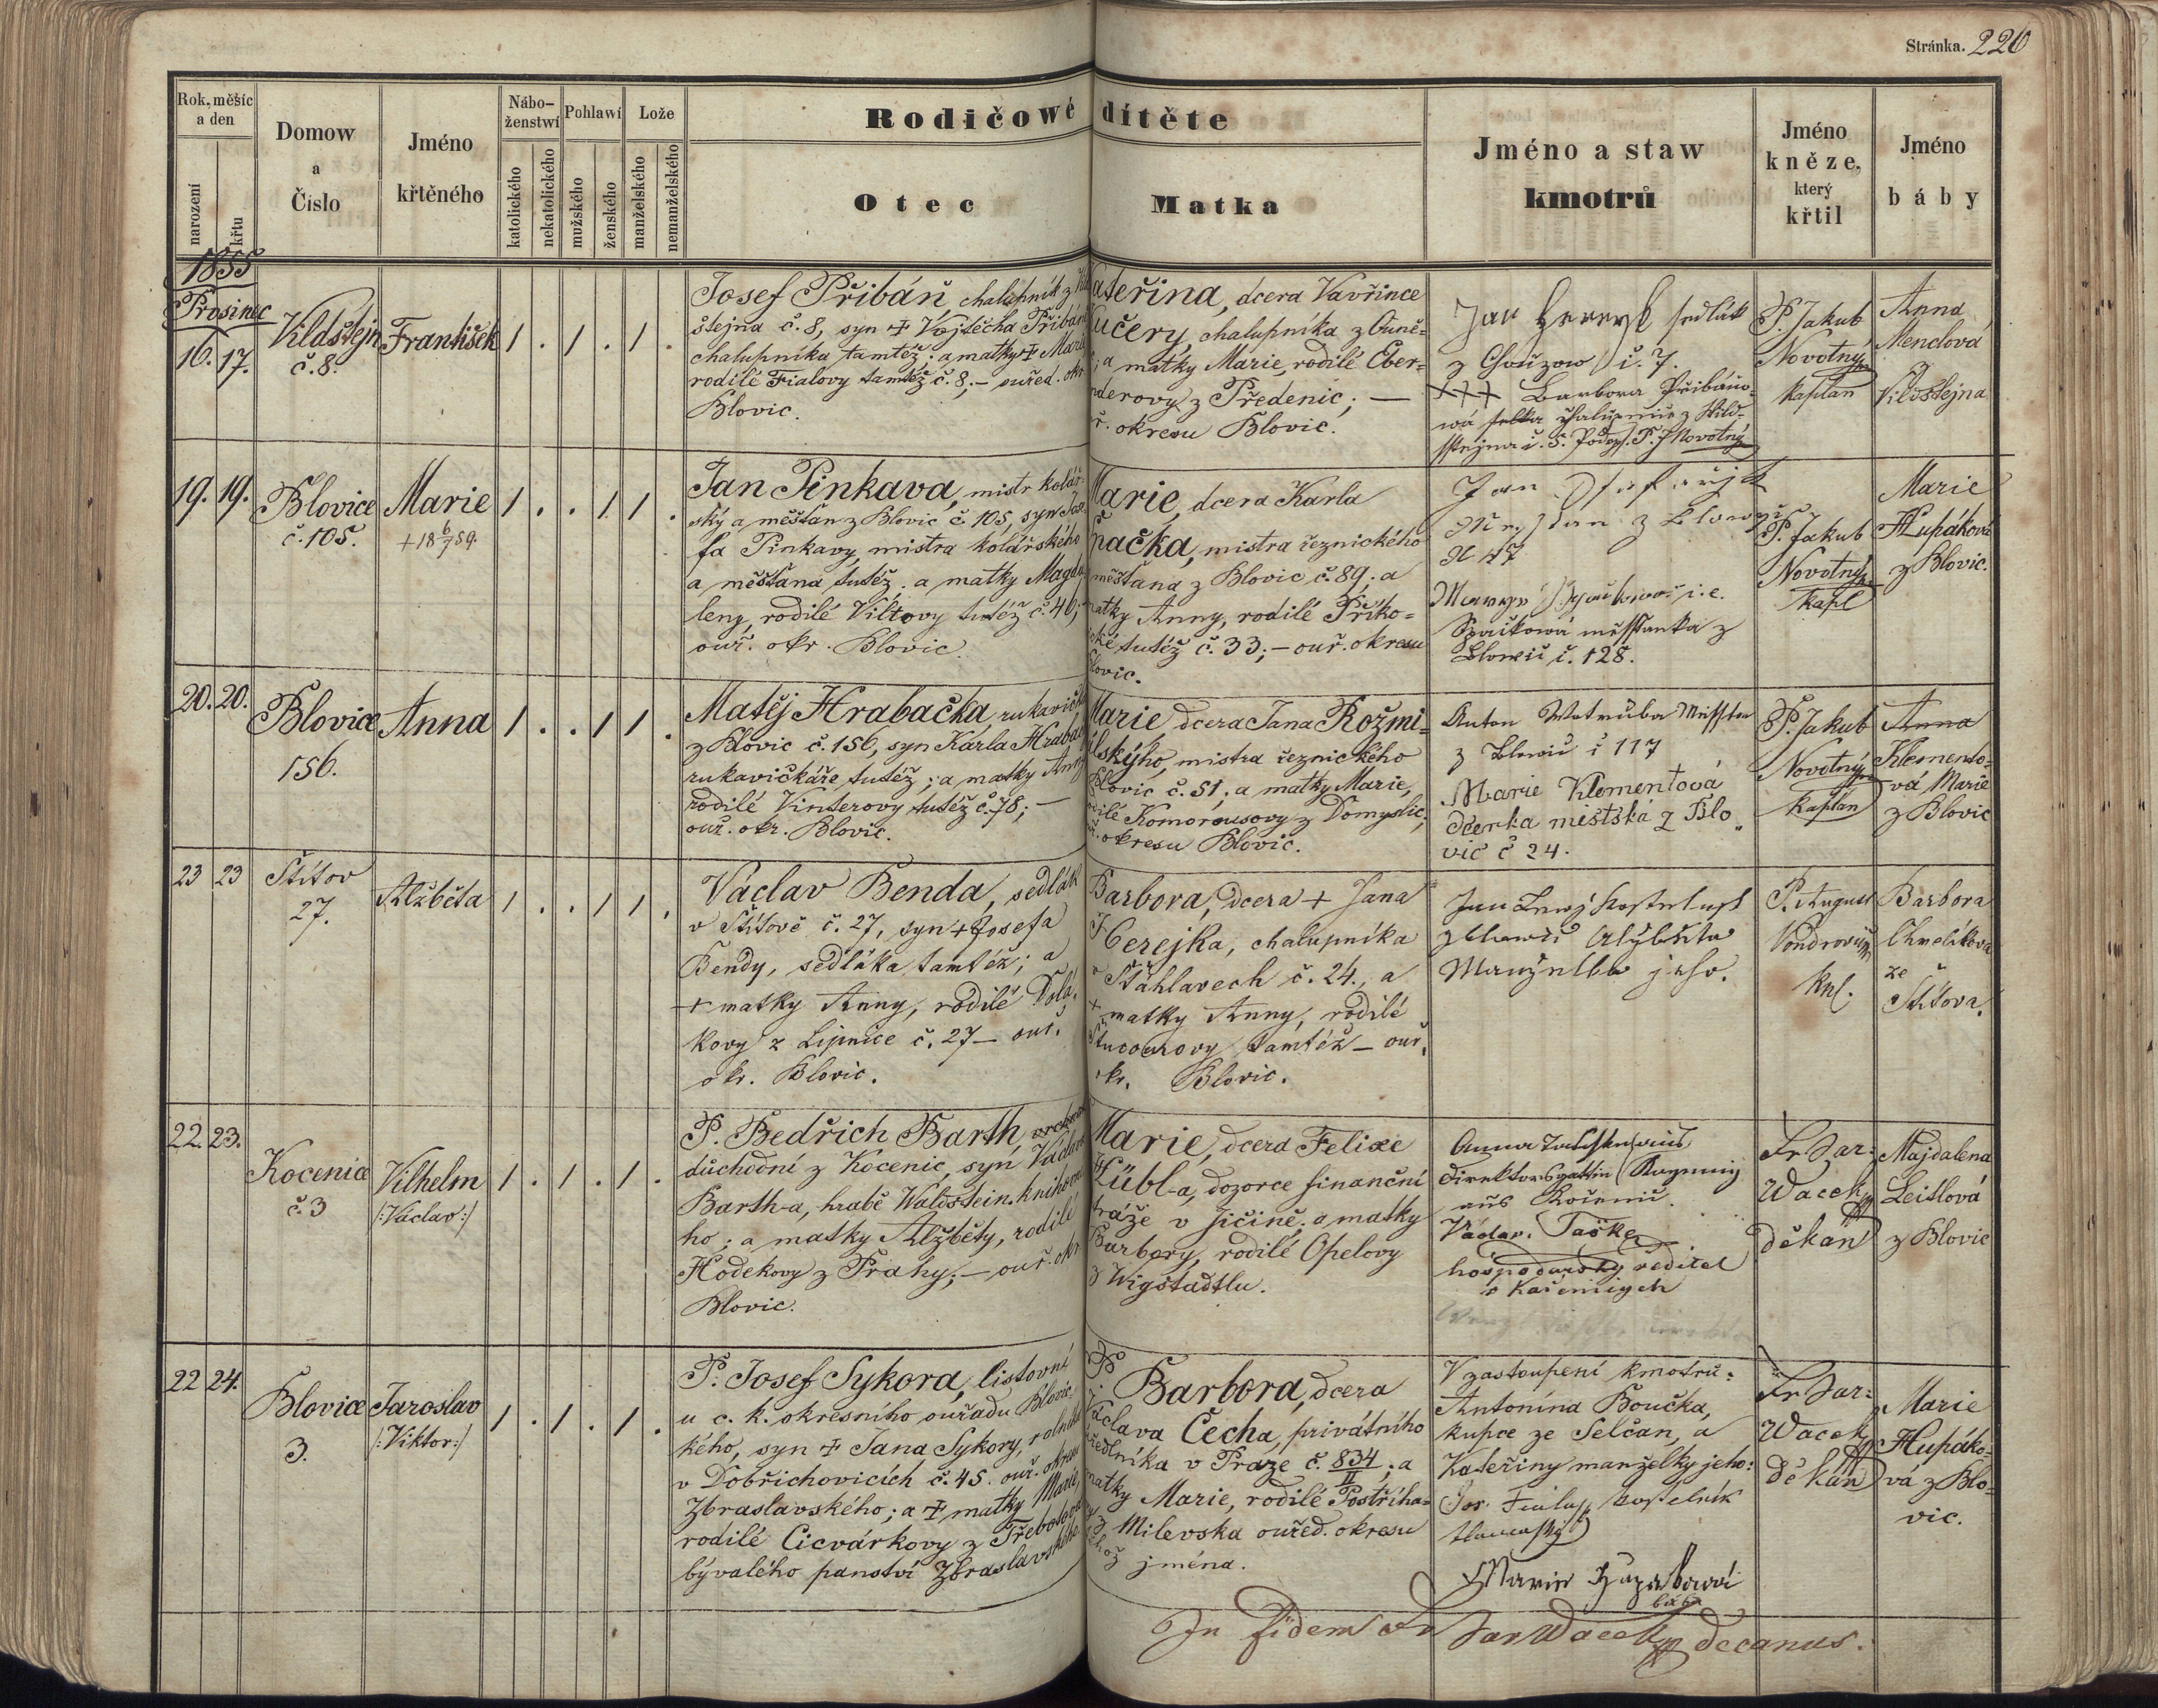 Stránka. 226
Rok, měsíc a den
narození
křtu
Domow a Číslo
Jméno křtěného
Nábo-ženstwí
katolického
nekatolického
Pohlawí
mužského
ženského
Lože
manželského
nemanželského
Rodičowé dítěte
Otec
Matka
Jméno a staw kmotrů
Jméno kněze, který křtil
Jméno báby
1855
Prosinec
16. 17.
Vildštejn
č. 8.
František
1 . 1 . 1 .
Josef Přibáň chalupník z
štejna č. 8, syn + Vojtěcha
chalupníka tamtéž; a matky +
rodilé Fialovy tamtéž č. 8; – ouřed. okr
Blovic.
Kateřina, dcera Vavřince
Kučery, chalupníka z
; a matky Marie, rodilé Eber-
derovy z Předenic; —
okresu Blovic.
Jan sedlák
z Chouzow č. 7.
+++ Barbora Přibáňo-
wá chalupnice z Wild-
sstejna č. 8. Podeps. P. J Novotný
P. Jakub
Novotný
kaplan
Anna
Menclová
z
Vildštejna
19. 19.
Blovice
č. 105.
Marie
+ 18 6/7 59.
1 . . 1 1 .
Jan Pinkava, mistr kolář-
ský a měšťan z Blovic č. 105, syn Jose-
fa Pinkavy, mistra kolářského
a měšťana tutéž; a matky Magda-
leny, rodilé Viltovy tutéž č. 40;
ouř. okr. Blovic.
Marie, dcera Karla
Špačka, mistra řeznického
měšťana z Blovic č. 89; a
matky Anny, rodilé Příko-
tutéž č. 33; – ouř. okresu
Blovic.
Jan
z Blowic
N 47
i. e.
Spačková měsstanka z
Blowic č. 128.
P. Jakub
Novotný
kapl
Marie
Hupáková
z Blovic.
20. 20.
Blovice
156.
Anna
1 . . 1 1 .
Matěj Hrabačka, rukavičkář
z Blovic č. 156, syn Karla
rukavičkáře tutéž; a matky Anny
rodilé Vinterovy tutéž č. 78; —
ouř. okr. Blovic.
Marie, dcera Jana Rožmi-
tálskýho, mistra řeznického
Blovic č. 51; a matky Marie,
rodilé Komorousovy z Domyslic,
okresu Blovic.
Anton Wotruba
z Blowic č 117
Marie Klementová
dcerka městská z Blo„
vic č 24.
P. Jakub
Novotný
kaplan
Anna
Klemento-
vá Marie
z Blovic
23 23
Štítov
27.
Alžběta
1 . . 1 1 .
Václav Benda, sedlák
v Štítově č. 27, syn + Josefa
Bendy, sedláka tamtéž; a
+ matky Anny, rodilé Dolá-
kovy z Lipnice č. 27 – ouř.
okr. Blovic.
Barbora, dcera + Jana
Čerejka, chalupníka
v Štáhlavech č. 24., a
+ matky Anny, rodilé
tamtéž – ouř.
okr. Blovic.
Jan
z Blowic Alžběta
Manželka jeho.
P. August
kpl.
Barbora
Chmelíkova
ze
Štítova.
22. 23.
Kocenice
č. 3
Vilhelm
/:Václav:/
1 . 1 . 1 .
P. Bedřich Barth,
důchodní z Kocenic, syn Václava
Barth-a, hrabě Waldstein.
ho; a matky Alžběty, rodilé
Hodekovy z Prahy; – ouř. okr
Blovic.
Marie, dcera Felixe
Kübl-a, dozorce finanční
stráže v Jičíně; a matky
Barbory, rodilé Opelovy
z Wigstadtlu.
Anna
Direktorsgattin
aus
Václav Taške
hospodářský ředitel
v
Fr Jar:
Wacek
děkan
Majdalena
Leitlová
z Blovic
22 24.
Blovice
3.
Jaroslav
/:Viktor:/
1 . 1 . 1 .
P. Josef Sykora, listovní
u c. k. okresního ouřadu Blovic-
kého, syn + Jana Sykory, rolníka
v Dobřichovicích č. 45. ouř. okresu
Zbraslavského; a + matky Marie,
rodilé Cicvárkovy z Třebotova
bývalého panství Zbraslavského.
Barbora, dcera
Václava Čecha, privátního
ředlníka v Praze č. 834/II; a
matky Marie, rodilé Postřiha-
z Milevska ouřed. okresu
téhož jména.
V zastoupení kmotrů:
Antonína Boučka,
kupce ze Selčan, a
Kateřiny manželky jeho:
Jos. Fiala, kostelník
Marie
bába
Fr Jar:
Wacek
děkan
Marie
Hupáko-
vá z Blo-
vic.
In fidem Fr Jar Wacek decanus.